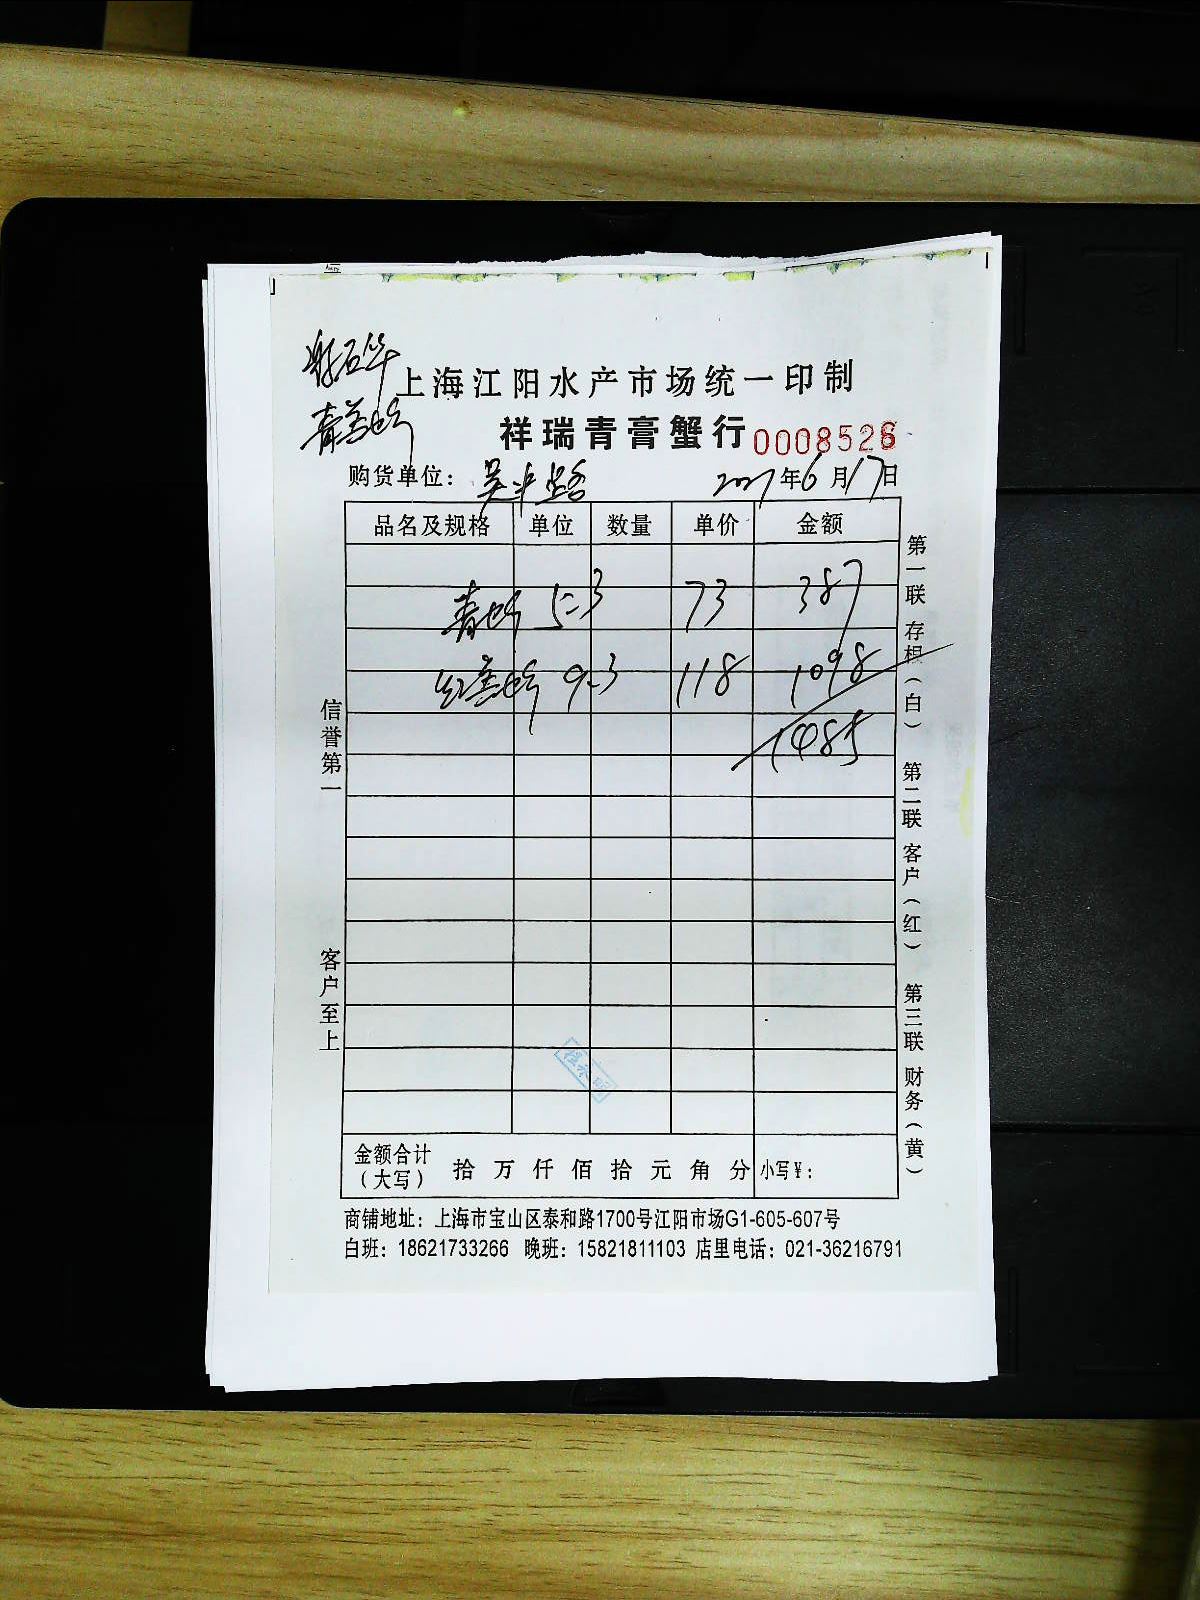 上海江阳水产市场统一印制
祥瑞青膏蟹行 0008526
购货单位: 吴中路 2021年6月17日
品名及规格 单位 数量 单价 金额
青 5=3 73 387
红膏 9=3 118 1098
1485
信誉第一
客户至上
第一联 存根(白)
第二联 客户(红)
第三联 财务(黄)
金额合计(大写) 拾 万 仟 佰 拾 元 角 分 小写¥:
商铺地址: 上海市宝山区泰和路1700号江阳市场G1-605-607号
白班: 18621733266 晚班: 15821811103 店里电话: 021-36216791